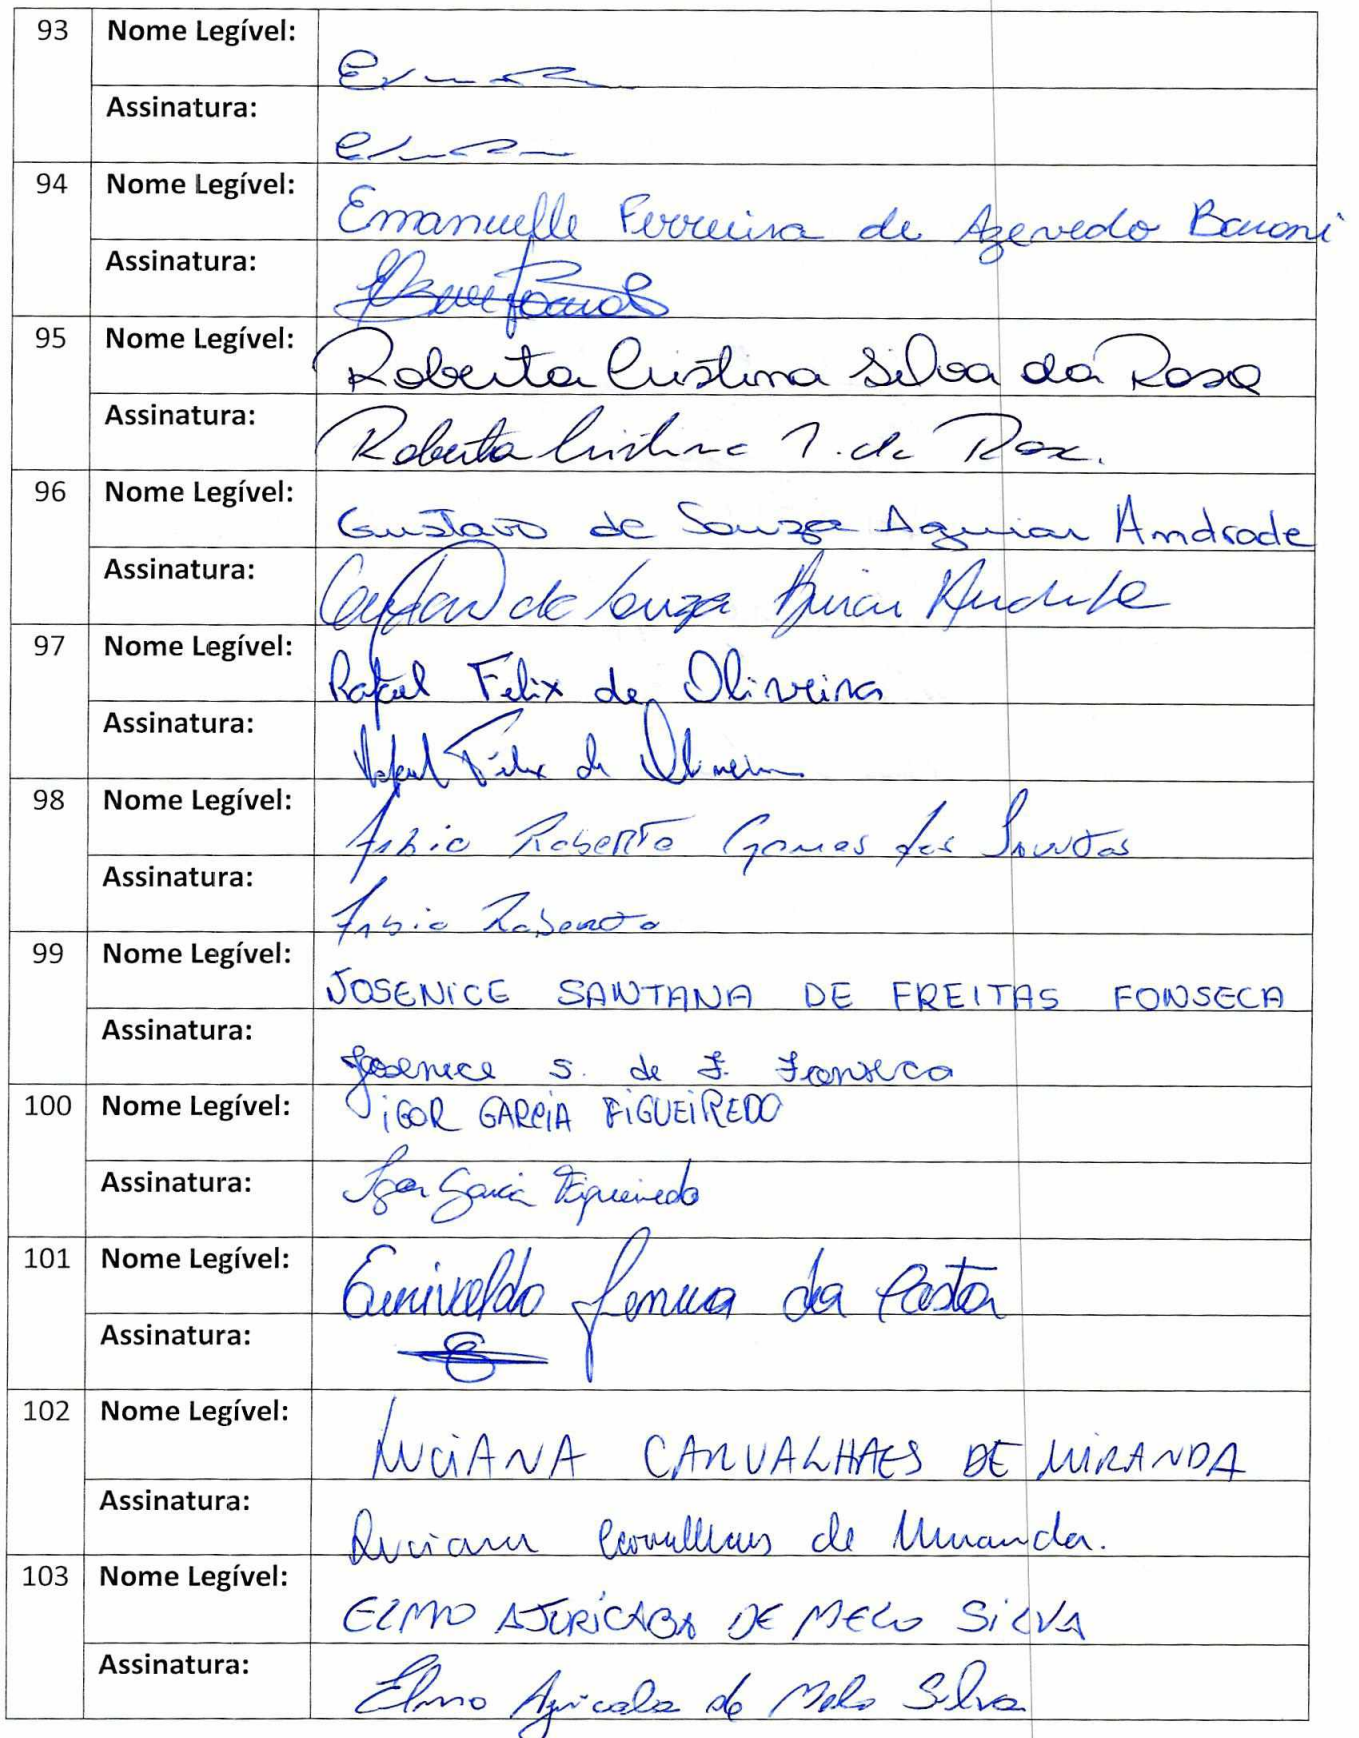 93 Nome Legível:
Assinatura:
94 Nome Legível: Emanuelle Ferreira de Azevedo Baroni
Assinatura:
95 Nome Legível: Roberta Cristina Silva da Rosa
Assinatura: Roberta Cristina S. da Rosa.
96 Nome Legível: Gustavo de Souza Aguiar Andrade
Assinatura: Gustavo de Souza Aguiar Andrade
97 Nome Legível: Rafael Felix de Oliveira
Assinatura: Rafael Felix de Oliveira
98 Nome Legível: Fabio Roberto Gomes dos Santos
Assinatura: Fabio Roberto
99 Nome Legível: JOSENICE SANTANA DE FREITAS FONSECA
Assinatura: Josenice S. de F. Fonseca
100 Nome Legível: IGOR GARCIA FIGUEIREDO
Assinatura: Igor Garcia Figueiredo
101 Nome Legível: da Costa
Assinatura:
102 Nome Legível: LUCIANA CARVALHAES DE MIRANDA
Assinatura: Luciana Carvalhaes de Miranda.
103 Nome Legível: ELMO AJURICABA DE MELO SILVA
Assinatura: Elmo Ajuricaba de Melo Silva